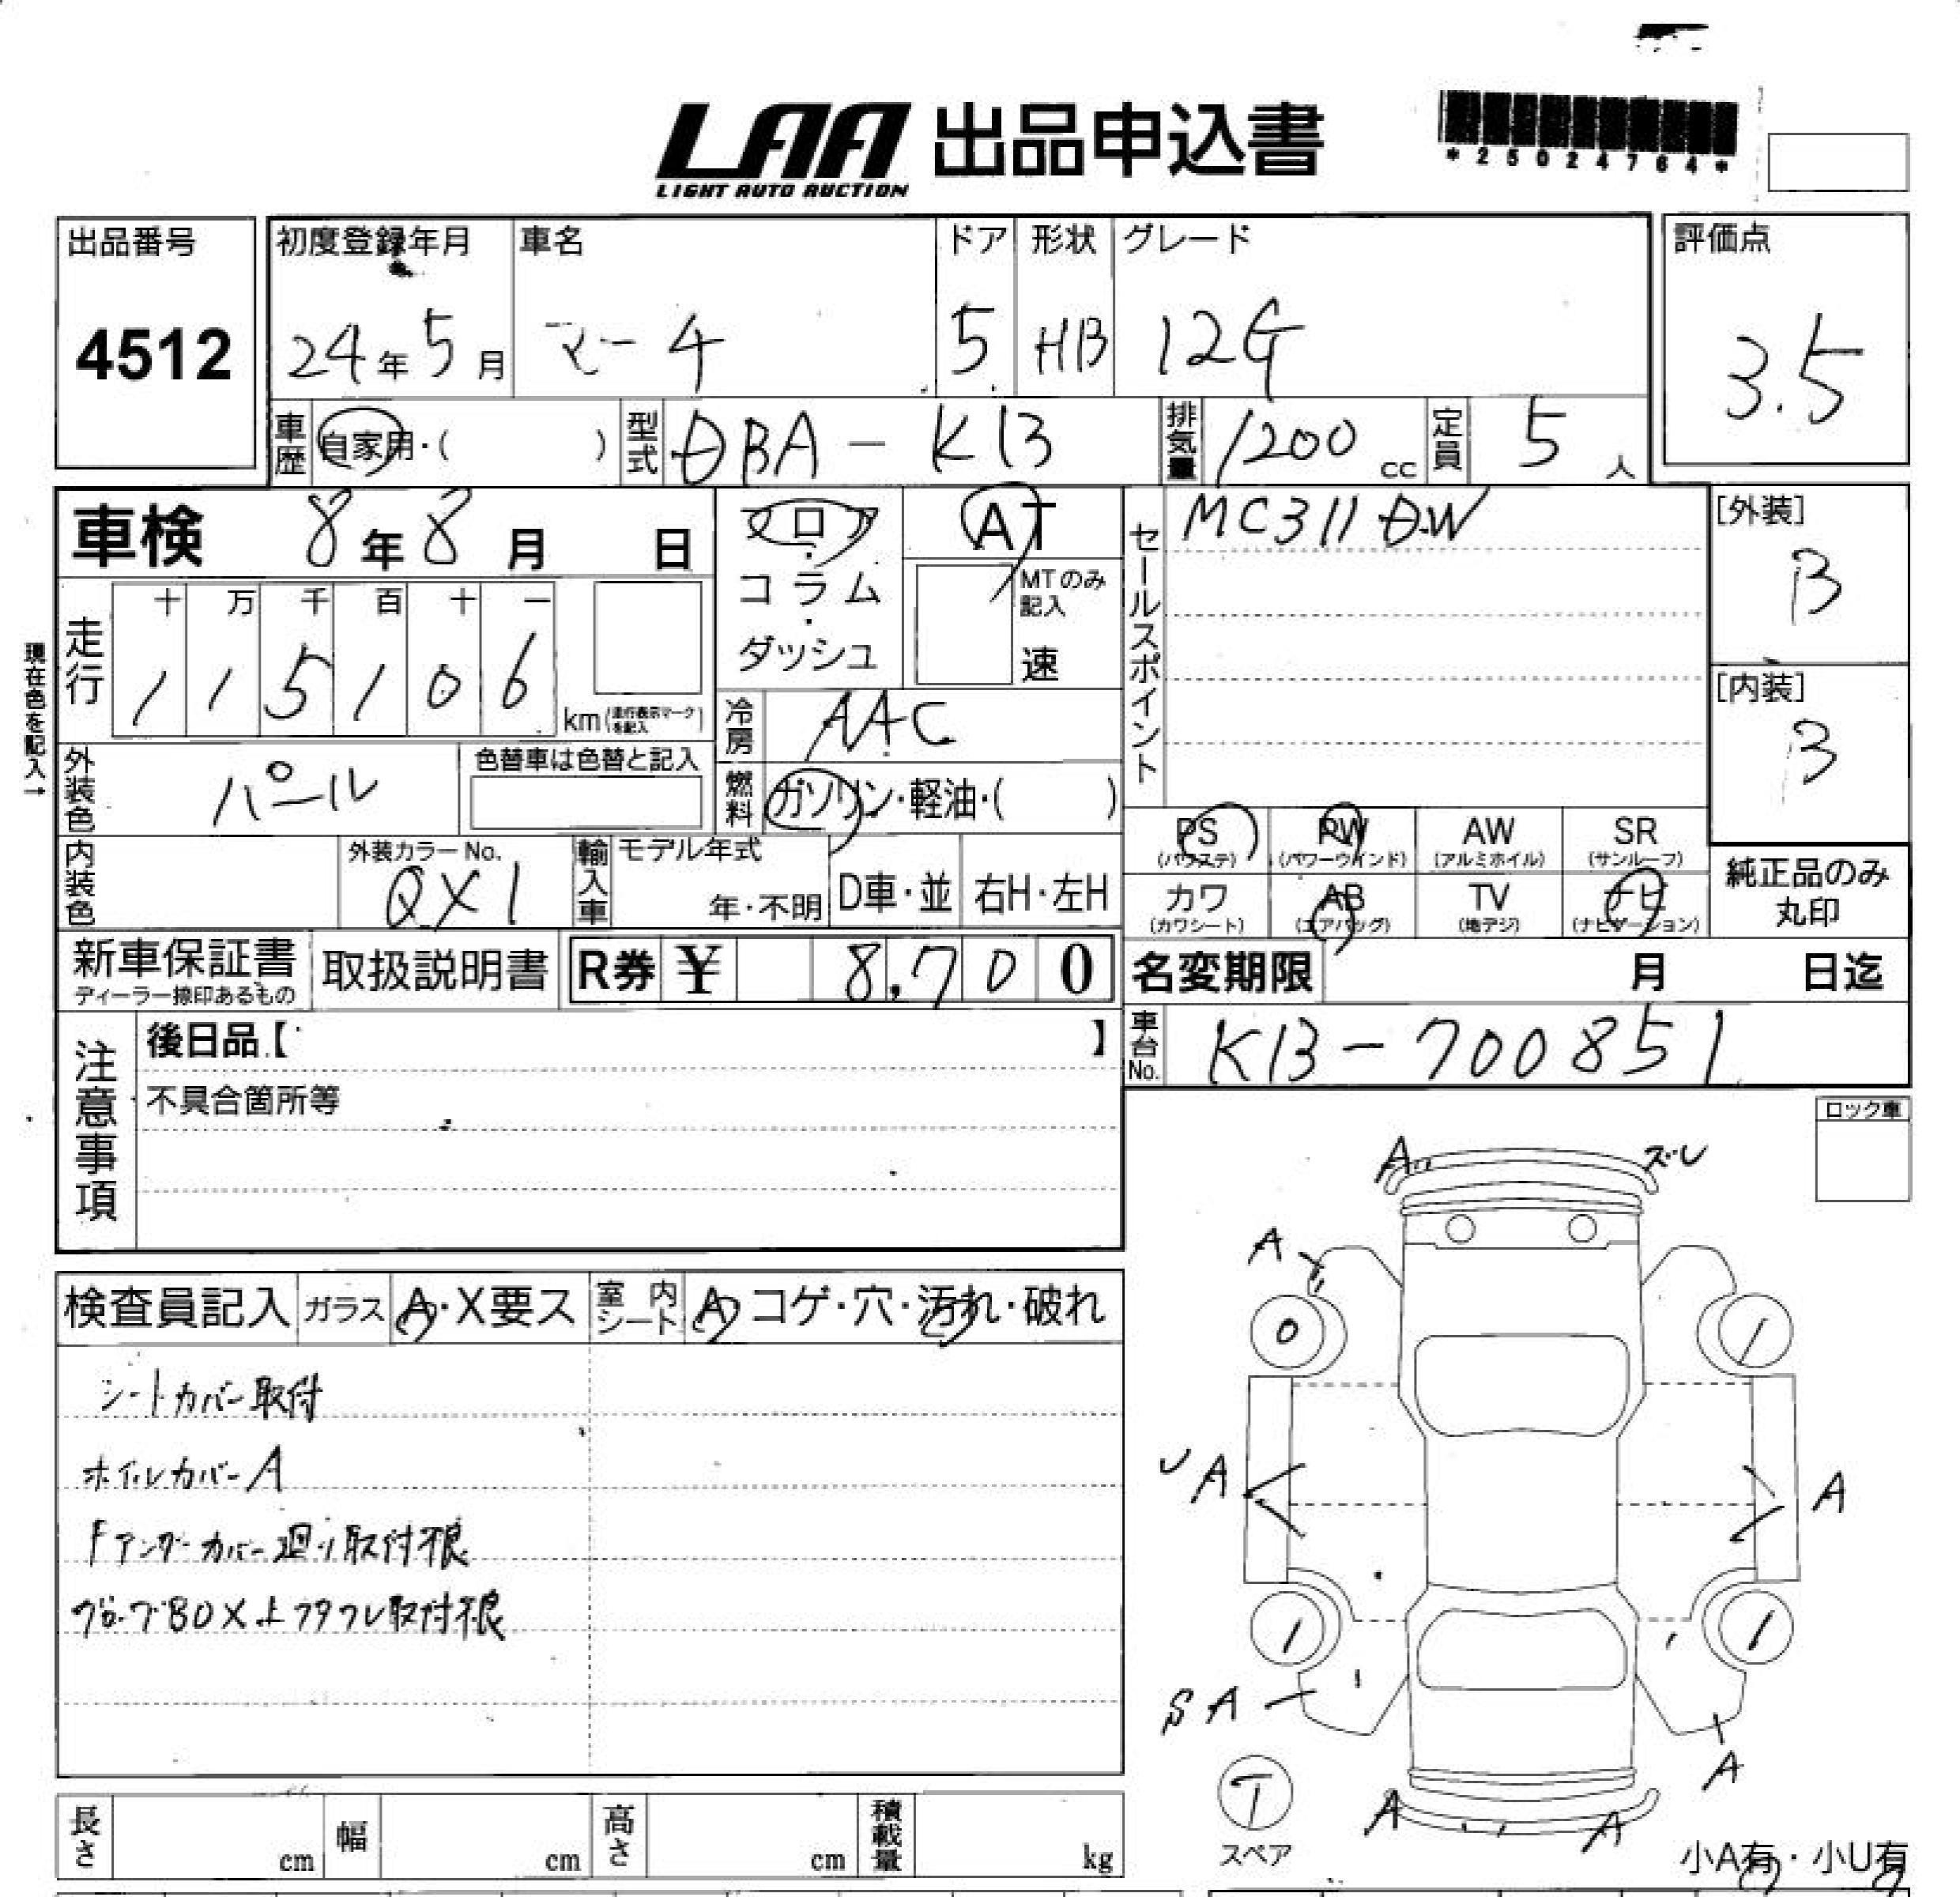 LAA 出品申込書
LIGHT AUTO AUCTION
*25024764*
出品番号
4512
初度登録年月
24年5月
車名
マーチ
ドア
5
形状
HB
グレード
12G
評価点
3.5
車歴 自家用・( )
型式 DBA-K13
排気量 1200 cc
定員 5 人
車検 8年8月 日
フロア・コラム・ダッシュ
AT
MTのみ記入
速
セールスポイント
MC311D-W
[外装]
B
[内装]
B
現在色を記入→
走行
十 万 千 百 十 一
1 1 5 1 0 6
km(走行表示マークを記入)
冷房 AAC
燃料 ガソリン・軽油・( )
外装色 パール
色替車は色替と記入
内装色
外装カラーNo.
QX1
輸入車
モデル年式
年・不明
D車・並
右H・左H
PS (パワステ)
PW (パワーウインド)
AW (アルミホイル)
SR (サンルーフ)
カワ (カワシート)
AB (エアバッグ)
TV (地デジ)
ナビ (ナビゲーション)
純正品のみ
丸印
新車保証書
ディーラー捺印あるもの
取扱説明書
R券 ¥ 8,700
名変期限 月 日迄
車台No. K13-700851
注意事項
後日品【 】
不具合箇所等
ロック車
検査員記入
ガラス A・X要ス
室内シート A コゲ・穴・汚れ・破れ
シートカバー取付
ホイルカバーA
Fアンダーカバー廻り取付不良
グローブBOX上フタフレ取付不良
A
ズレ
A
0
1
UA
A
1
1
SA
A
T
スペア
A
A
小A有・小U有
長さ cm
幅 cm
高さ cm
積載量 kg